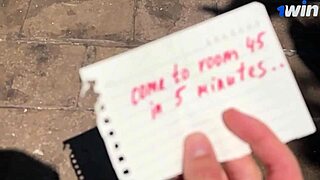 1win
come to room 45
in 5 minutes..